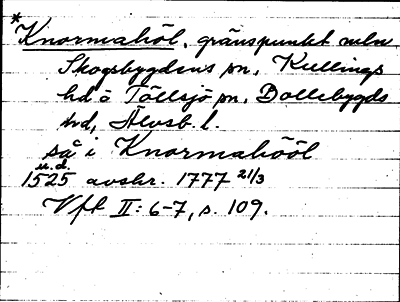 *Knormahöl, gränspunkt mln
Skogsbygdens sn, Kullings
hd o Töllsjö sn, Bollebygds
hd, Älvsb. l.
så i Knormahööl
u.d.
1525 avskr. 1777 21/3
Vft II: 6-7, s. 109.